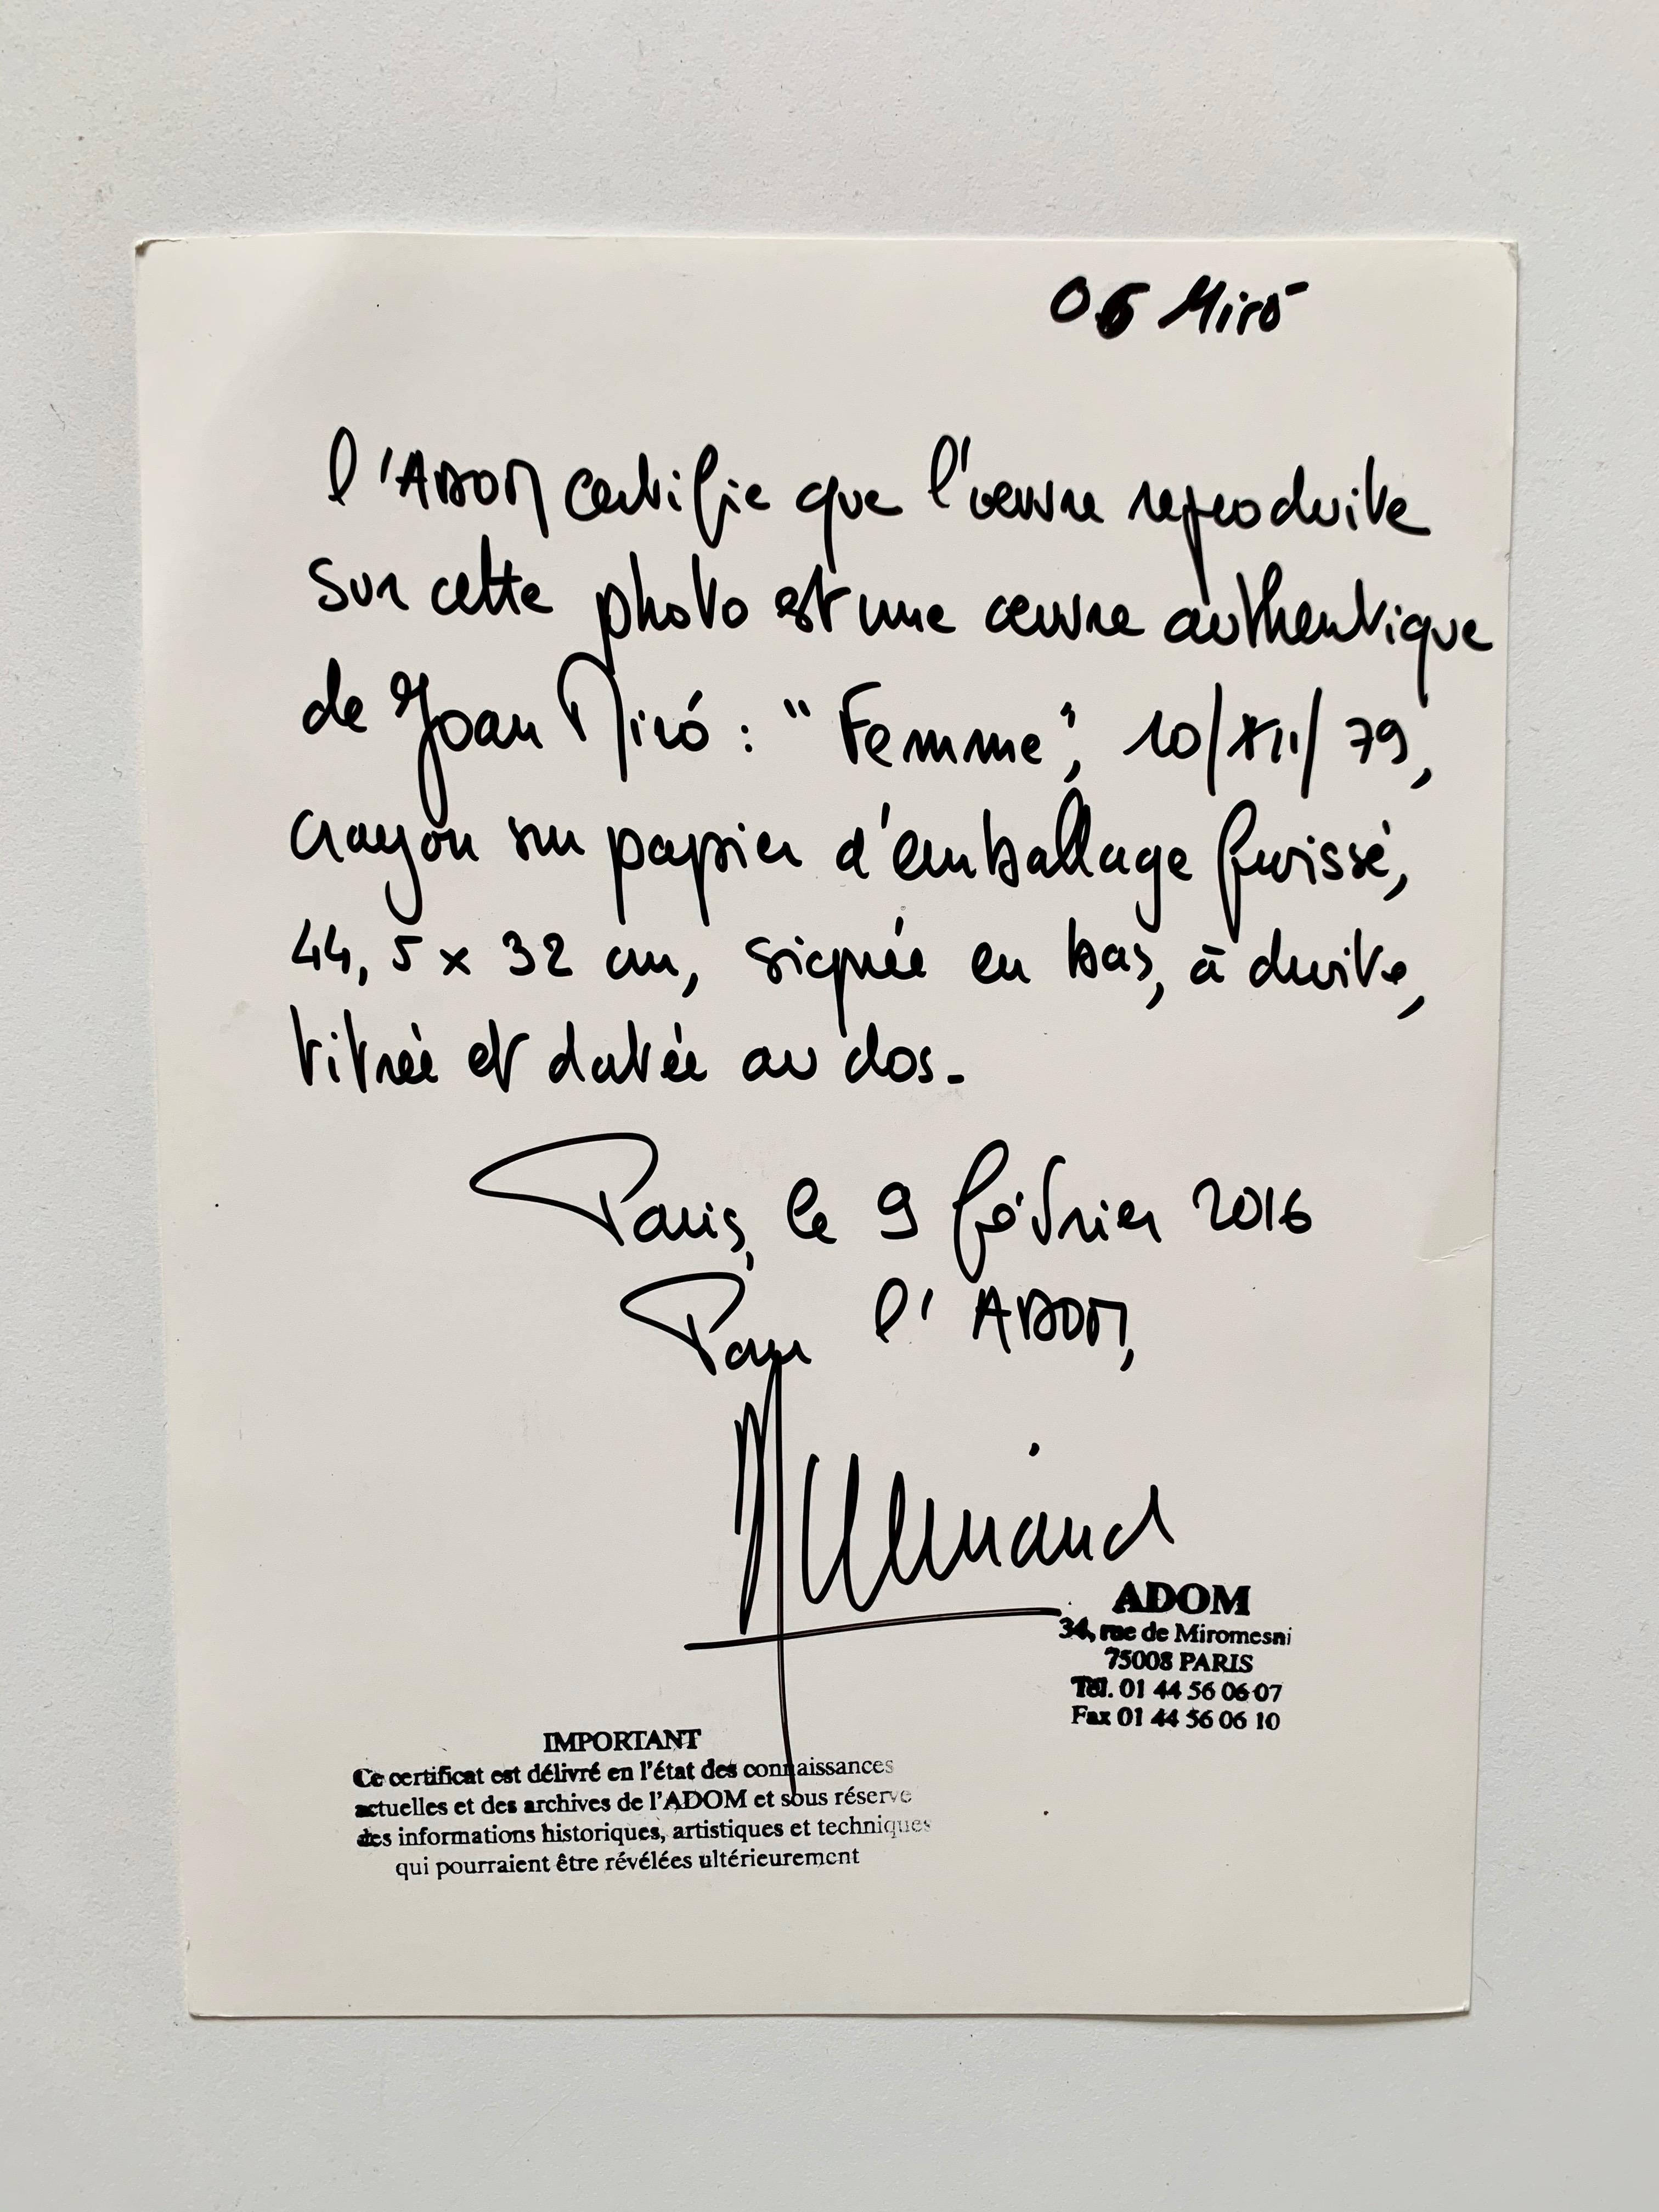 06 Miró
l'ADOM certifie que l'œuvre reproduite
sur cette photo est une œuvre authentique
de Joan Miró : "Femme", 10/XII/79,
crayon sur papier d'emballage froissé,
44,5 x 32 cm, signée en bas, à droite,
titrée et datée au dos.
Paris, le 9 février 2016
Pour l'ADOM,
ADOM
34, rue de Miromesni
75008 PARIS
Tél. 01 44 56 06 07
Fax 01 44 56 06 10
IMPORTANT
Ce certificat est délivré en l'état des connaissances
actuelles et des archives de l'ADOM et sous réserve
des informations historiques, artistiques et techniques
qui pourraient être révélées ultérieurement